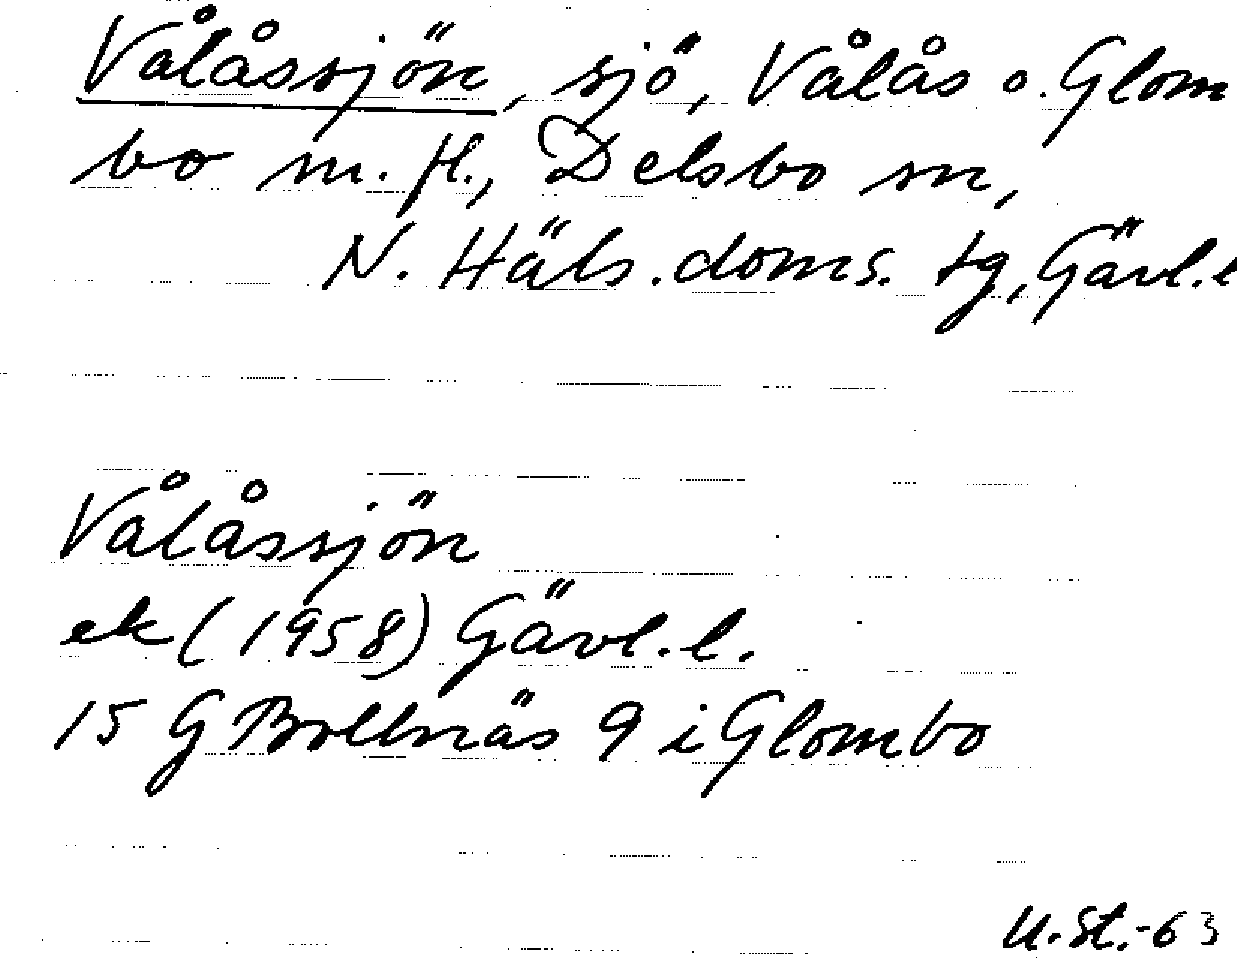 Vålåssjön, sjö, Vålås o. Glom
bo m.fl., Delsbo sn,
N. Häls. doms. tg, Gävl.l
Vålåssjön
ek (1958) Gävl.l.
15 G Bollnäs 9 i Glombo
U.St.-63